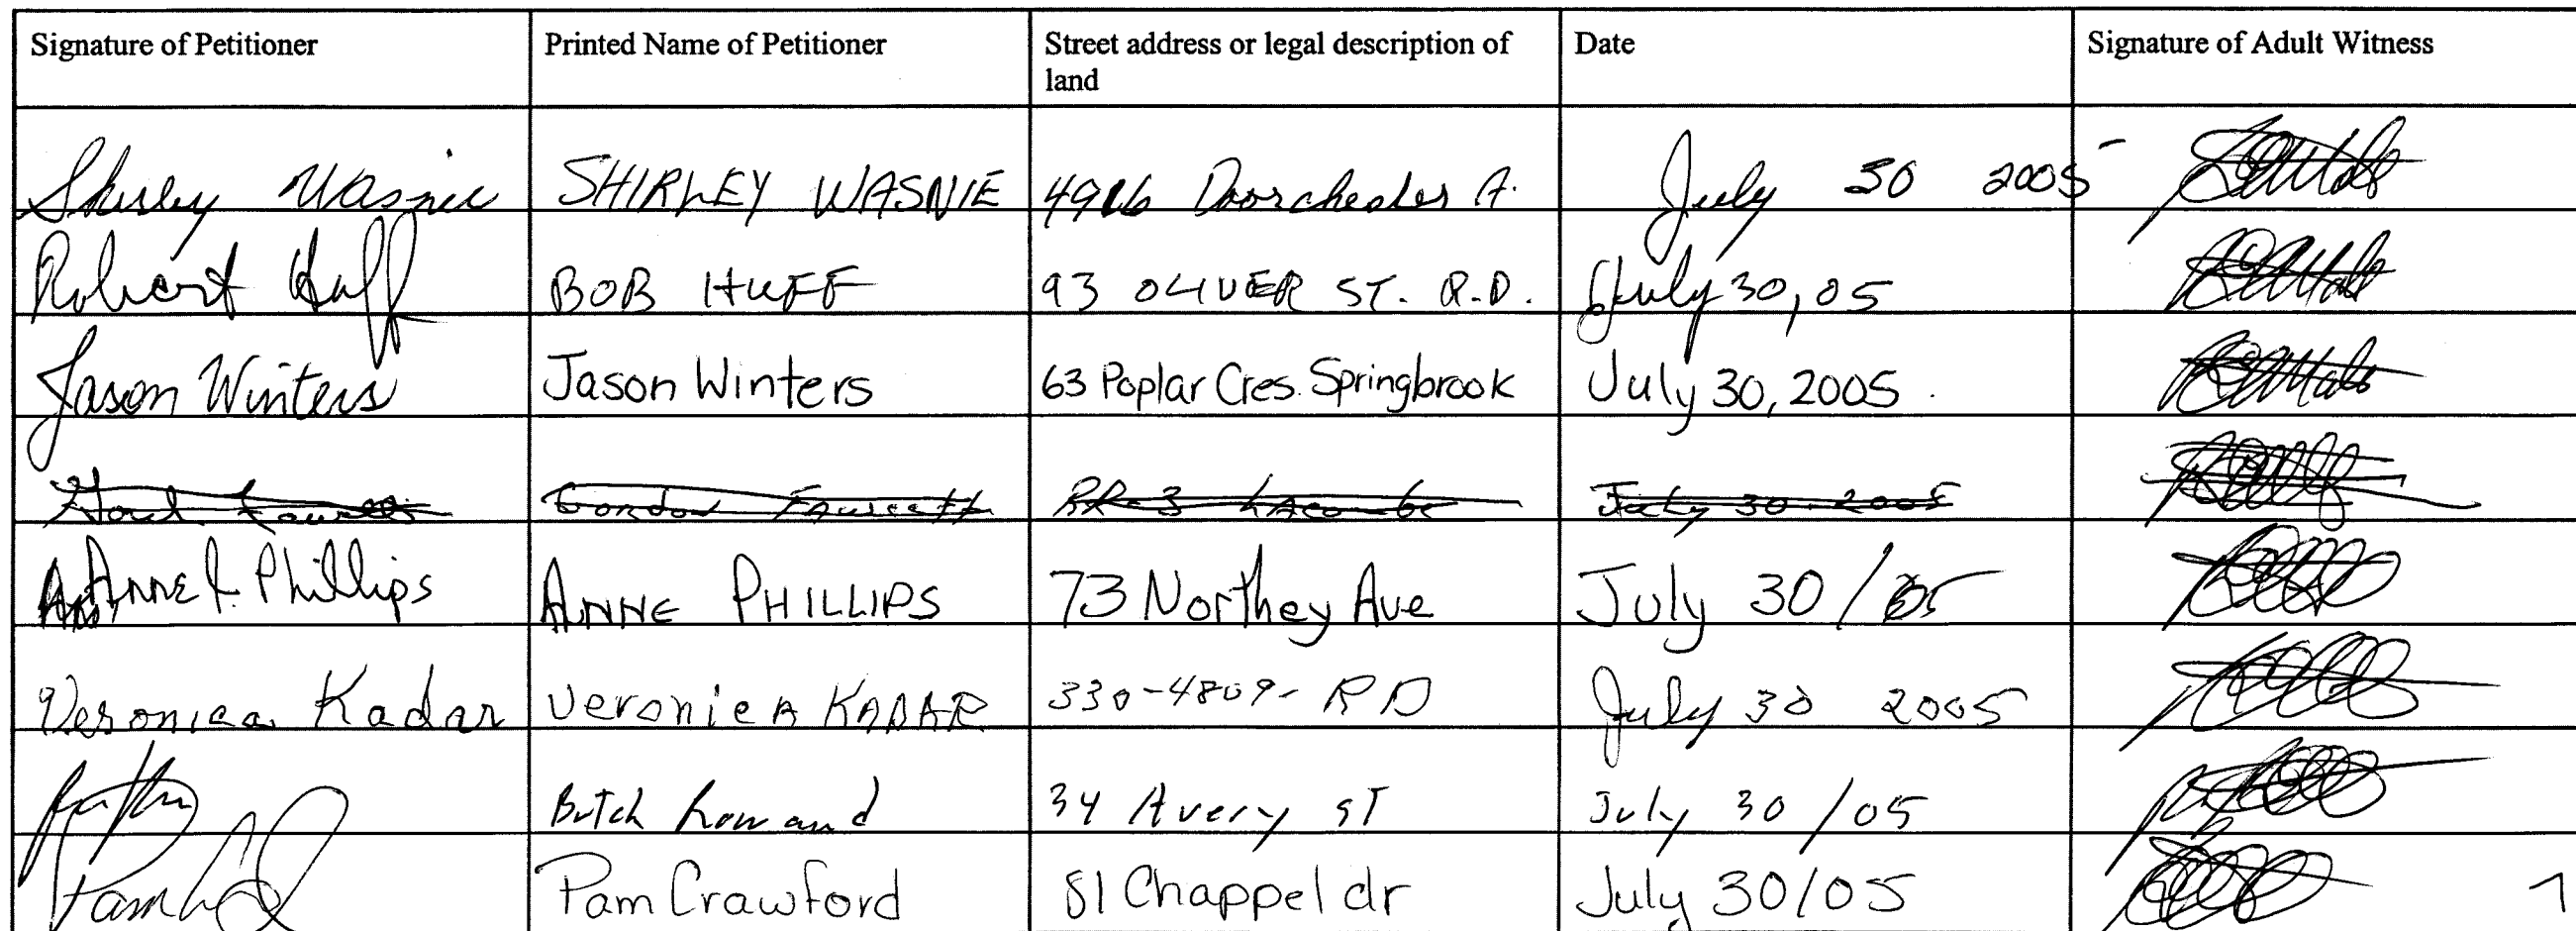 Signature of Petitioner Printed Name of Petitioner Street address or legal description of Date Signature of Adult Witness
land
Shirley Wasnie SHIRLEY WASNIE July 30 2005
Robert Huff BOB HUFF 93 OLIVER ST. R.D. July 30, 05
Jason Winters Jason Winters 63 Poplar Cres. Springbrook July 30, 2005.
Gordon Fawcett RR 3 Lacombe July 30 2005
Anne Phillips ANNE PHILLIPS 73 Northey Ave July 30/05
Veronica Kadar VeronicA KADAR 330-4809- RD July 30 2005
Butch 34 Avery ST July 30/05
Pam Pam Crawford 81 Chappel dr July 30/05